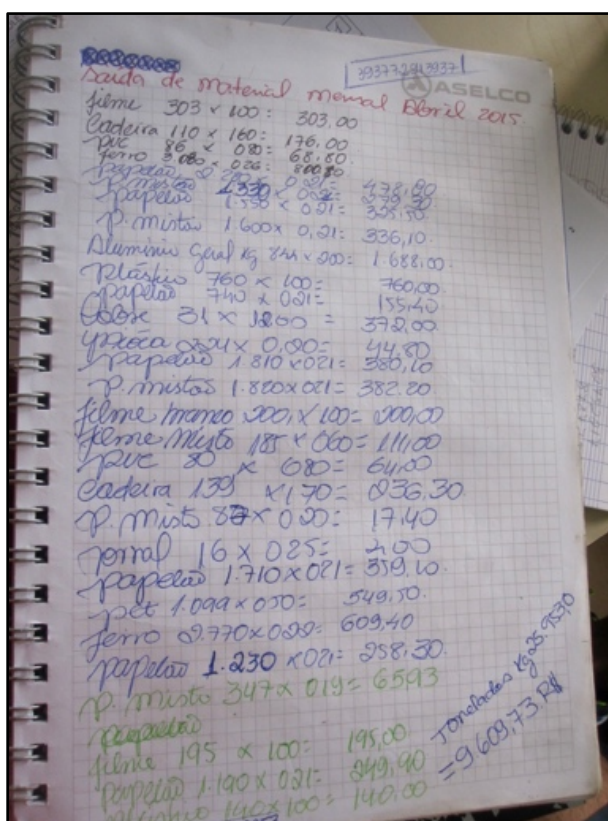 3937729|3937
ASELCO
Saida de material mensal Abril 2015.
filme 303 x 100: 303.00
Cadeira 110 x 160: 176,00
pvc 86 x 080: 68.80
ferro 3.080 x 026: 800,80
papelão 0,21= 478,80
p. misto 1.330 x 279,30
papelão 1.550 x 0,21= 325,50
p. mistão 1.600 x 0,21= 336,10.
Aluminio Geral Kg 844 x 200: 1.688,00.
plástico 760 x 100= 760,00
papelão 740 x 021= 155,40
Cobre 31 x 1200 = 372,00
x 0,20= 44,80
papelão 1.810 x 021= 380,10
p. mistão 1.820 x 021= 382.20
filme branco 200, x 100= 200,00
filme Misto 185 x 060= 111,00
pvc 80 x 080= 64,00
Cadeira 139 x 170= 236,30
p. misto 87 x 020= 17,40
jornal 16 x 025= 4,00
papelão 1.710 x 021= 359.10
pet 1.099 x 050= 549,50.
ferro 2.770 x 022= 609,40
papelão 1.230 x 021= 258,30.
p. misto 347 x 019= 65,93
filme 195 x 100= 195,00
papelão 1.190 x 021= 249,90
140 x 100= 140,00
Toneladas Kg 25.953,0
= 9.609,73.R$